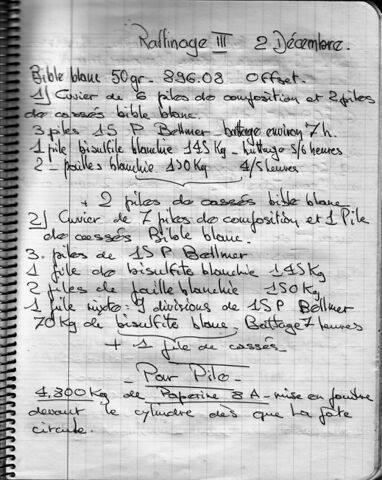 Raffinage III 2 Décembre.
Bible blanc 50gr - 896.08 Offset.
1) Cuvier de 6 piles de composition et 2 piles
de cassés bible blanc.
3 piles 1S P Bellmer - battage environ 7h.
1 pile bisulfite blanchie 145 Kg - battage 5/6 heures
2 - pailles blanchie 150 Kg 4/5 heures
+ 2 piles de cassés bible blanc
2) Cuvier de 7 piles de composition et 1 Pile
de cassés Bible blanc.
3. piles de 1S P Bellmer
1 pile de bisulfite blanchie 145 Kg
2 piles de paille blanchie 150 Kg
1 pile mixte: 9 divisions de 1S P Bellmer
70 Kg de bisulfite blanc, Battage 7 heures
+ 1 pile de cassés
- Par Pile -
4.800 Kg de Paperine 8 A - mise en poudre
devant le cylindre dès que la pâte
circule.